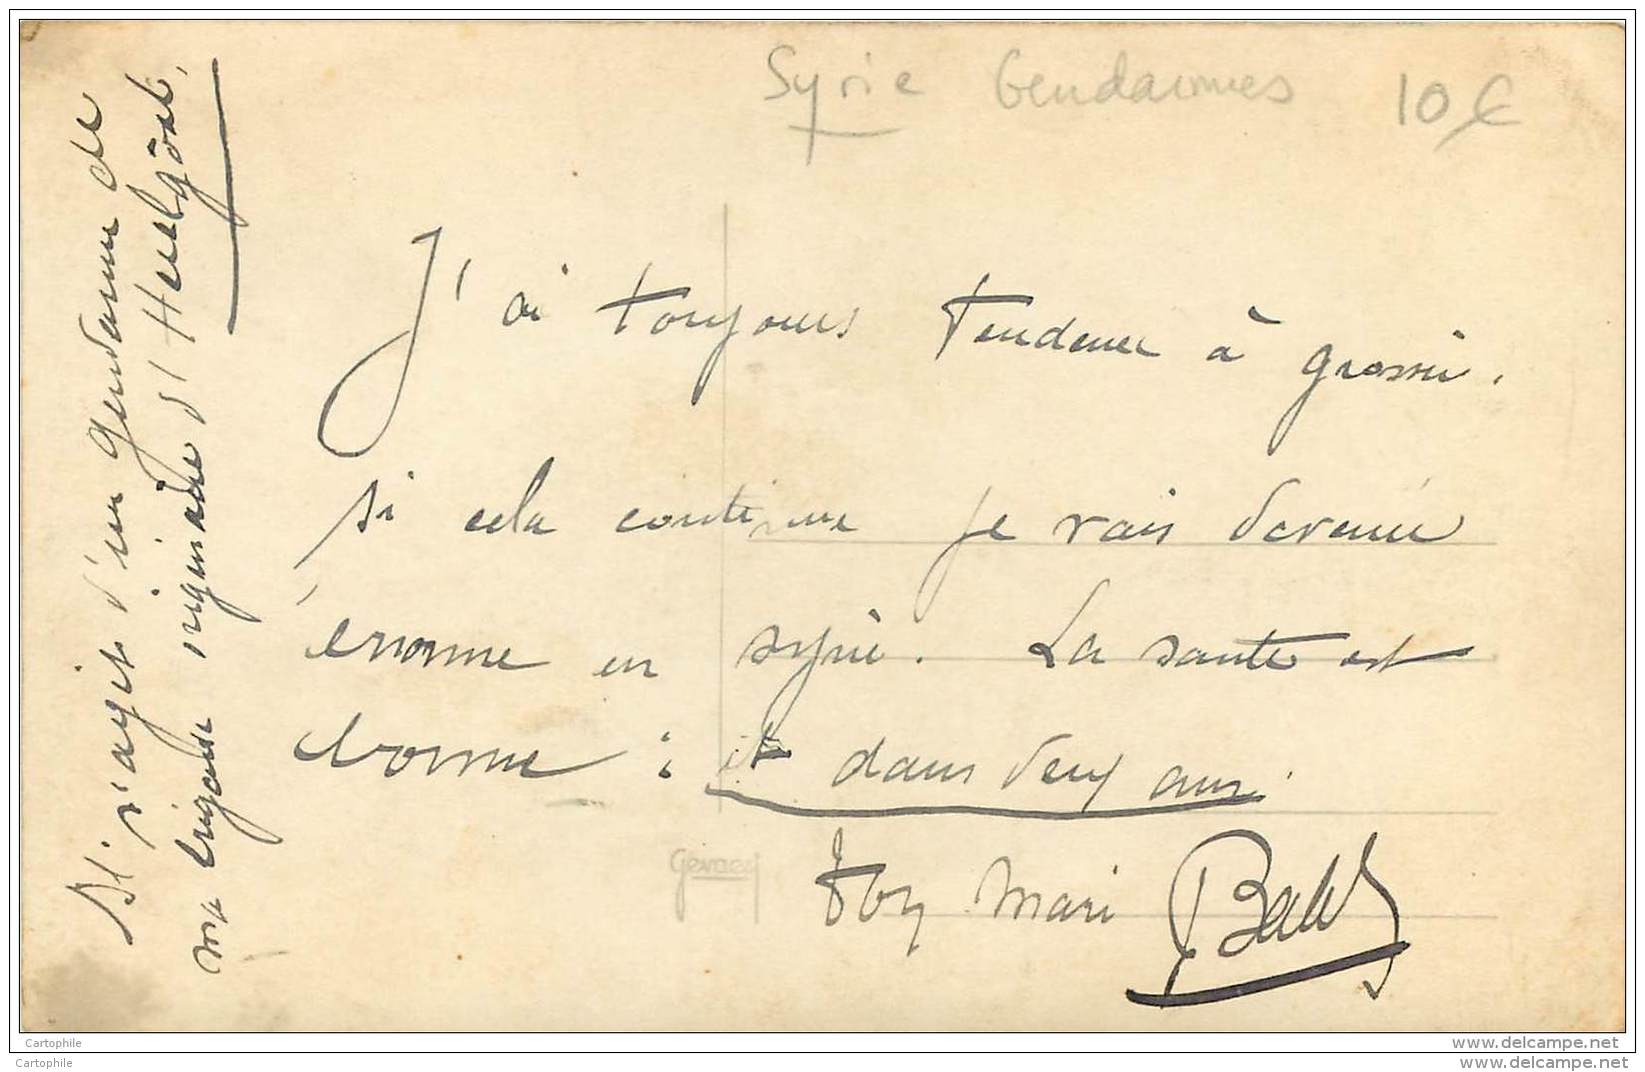 Syrie Gendarmes 10 €
J'ai toujours tendence à grossir.
si cela continue je vais devenir
énorme en syrie. La santé est
bonne : et dans deux ans.
Ton Mari
Il s'agit d'un gendarme de
ma brigade originaire d'Huelgoat.
Gevaert
Cartophile
www.delcampe.net
Cartophile
www.delcampe.net